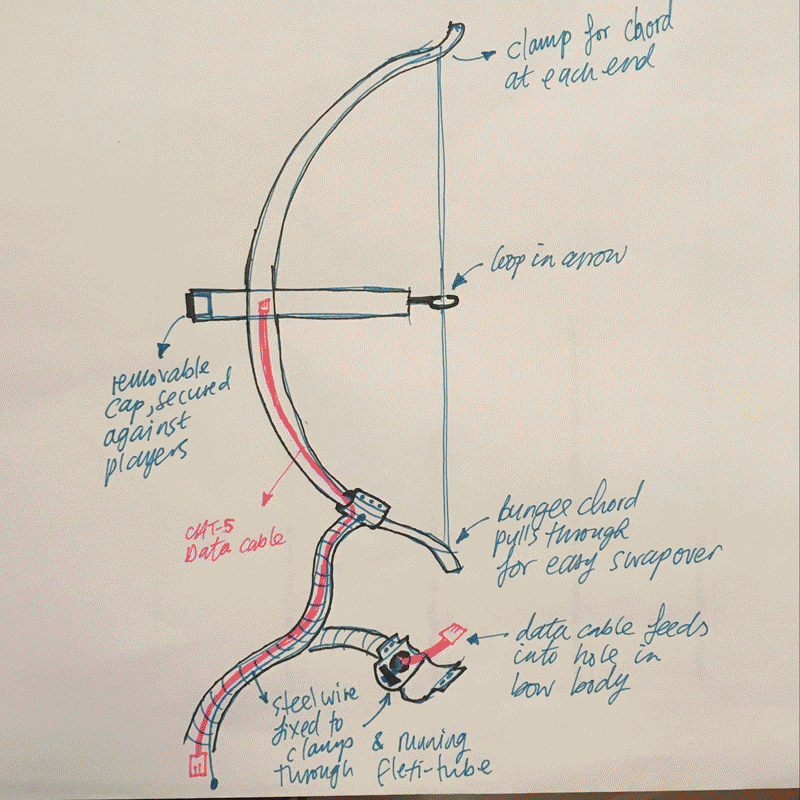 clamp for chord
at each end
loop in arrow
removable
cap, secured
against
players
CAT-5
Data cable
bungee chord
pulls through
for easy swapover
data cable feeds
into hole in
bow body
steel wire
fixed to
clamp & running
through flexi-tube